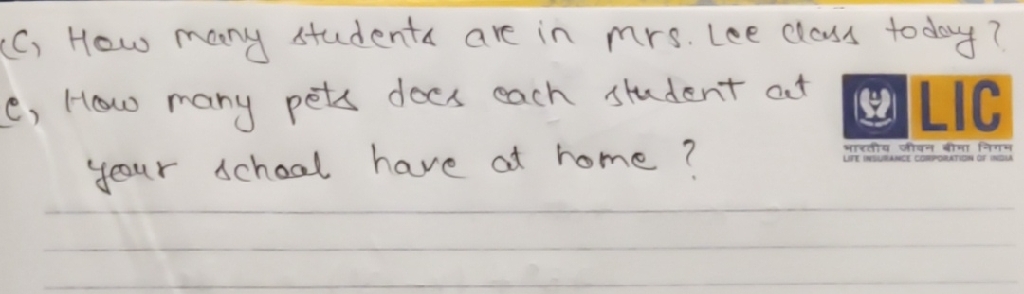 (C) How many students are in mrs. Lee class today?
(e) How many pets does each student at
your school have at home ?
LIC
भारतीय जीवन बीमा निगम
LIFE INSURANCE CORPORATION OF INDIA